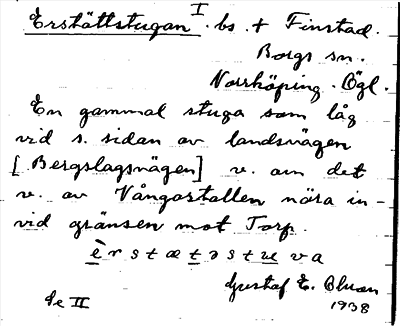 Erstättstugan I. bs. t Finstad.
Borgs sn.
Norrköping. Ögl.
En gammal stuga som låg
vid s. sidan av landsvägen
[Bergslagsvägen] v. om det
v. av Vångastallen nära in-
vid gränsen mot Torp.
Gustaf E.
1938
Se II